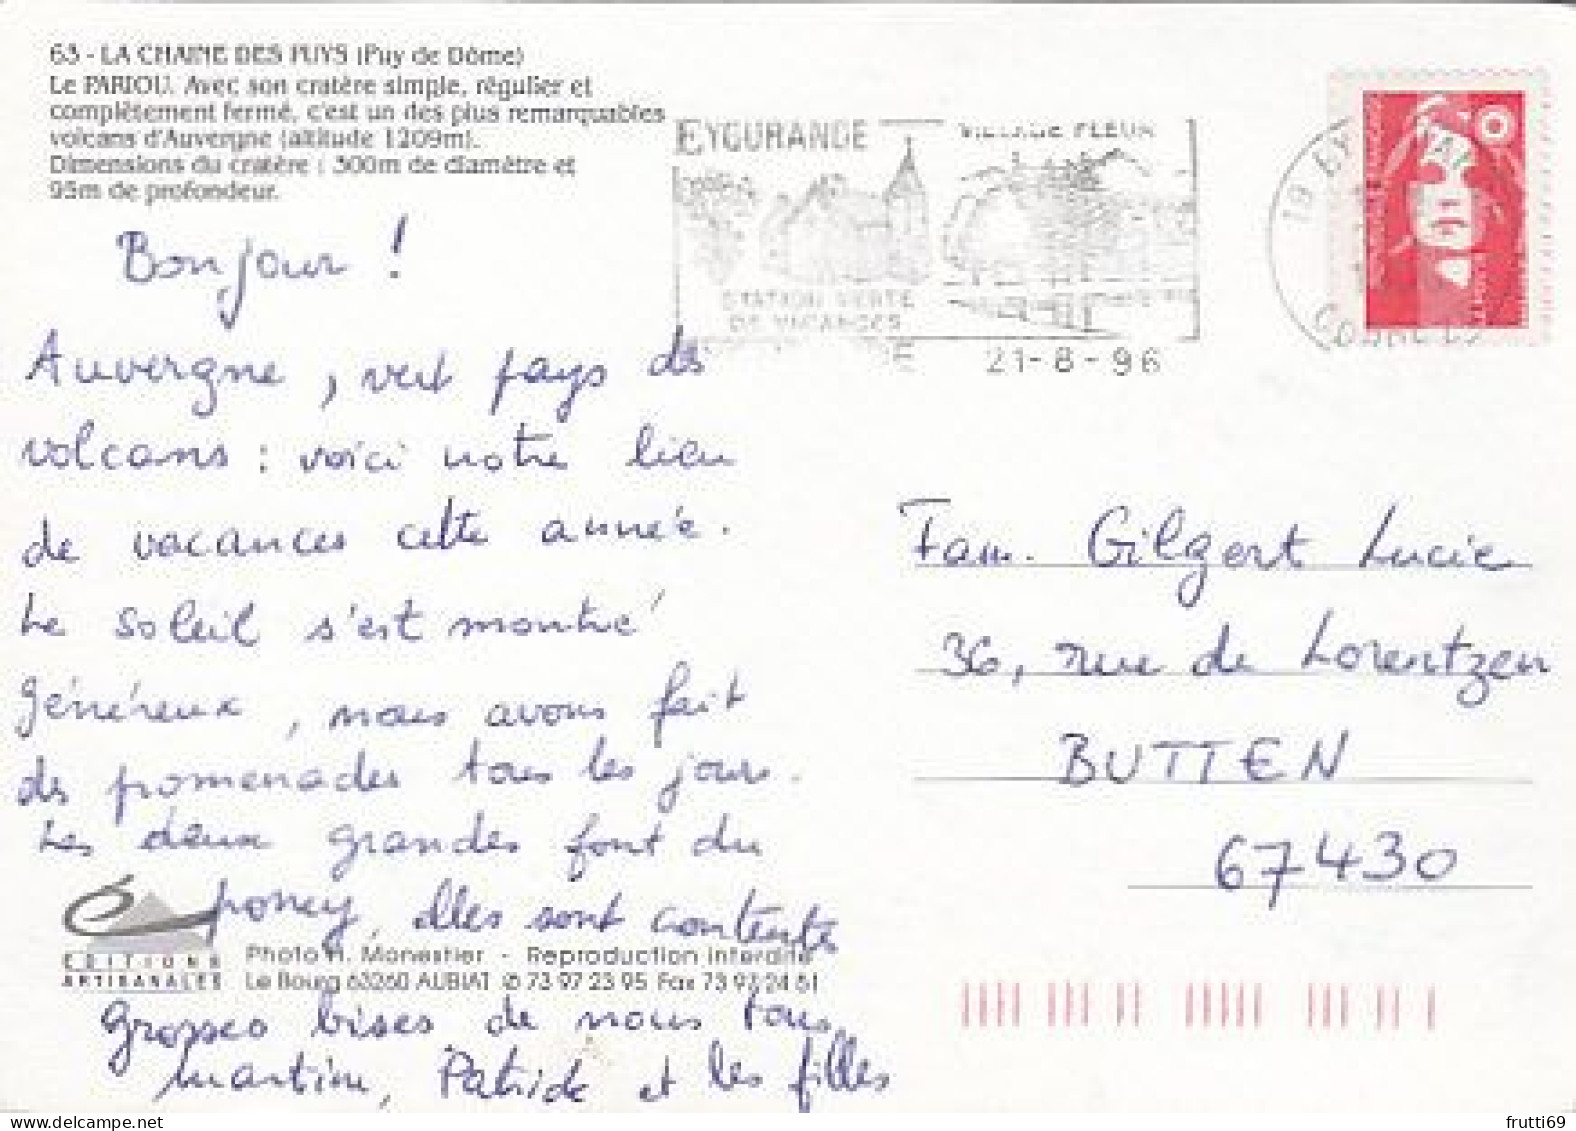 63 - LA CHAINE DES PUYS (Puy de Dôme)
Le PARIOU. Avec son cratère simple, régulier et
complètement fermé, c'est un des plus remarquables
volcans d'Auvergne (altitude 1209m).
Dimensions du cratère : 300m de diamètre et
95m de profondeur.
EYGURANDE VILLAGE FLEURI
STATION VERTE
DE VACANCES
21-8-96
19
Bonjour !
Auvergne, vert pays des
volcans : voici notre lieu
de vacances cette année.
Le soleil s'est montré
généreux, nous avons fait
des promenades tous les jours.
Les deux grandes font du
poney, elles sont contentes
Grosses bises de nous tous,
Martine, Patrick et les filles
Fam. Gilgert Lucie
36, rue de Lorentzen
BUTTEN
67430
EDITIONS
ARTISANALES
Photo H. Monestier - Reproduction interdite
Le Bourg 63260 AUBIAT ✆ 73 97 23 95 Fax 73 97 24 61
frutti69